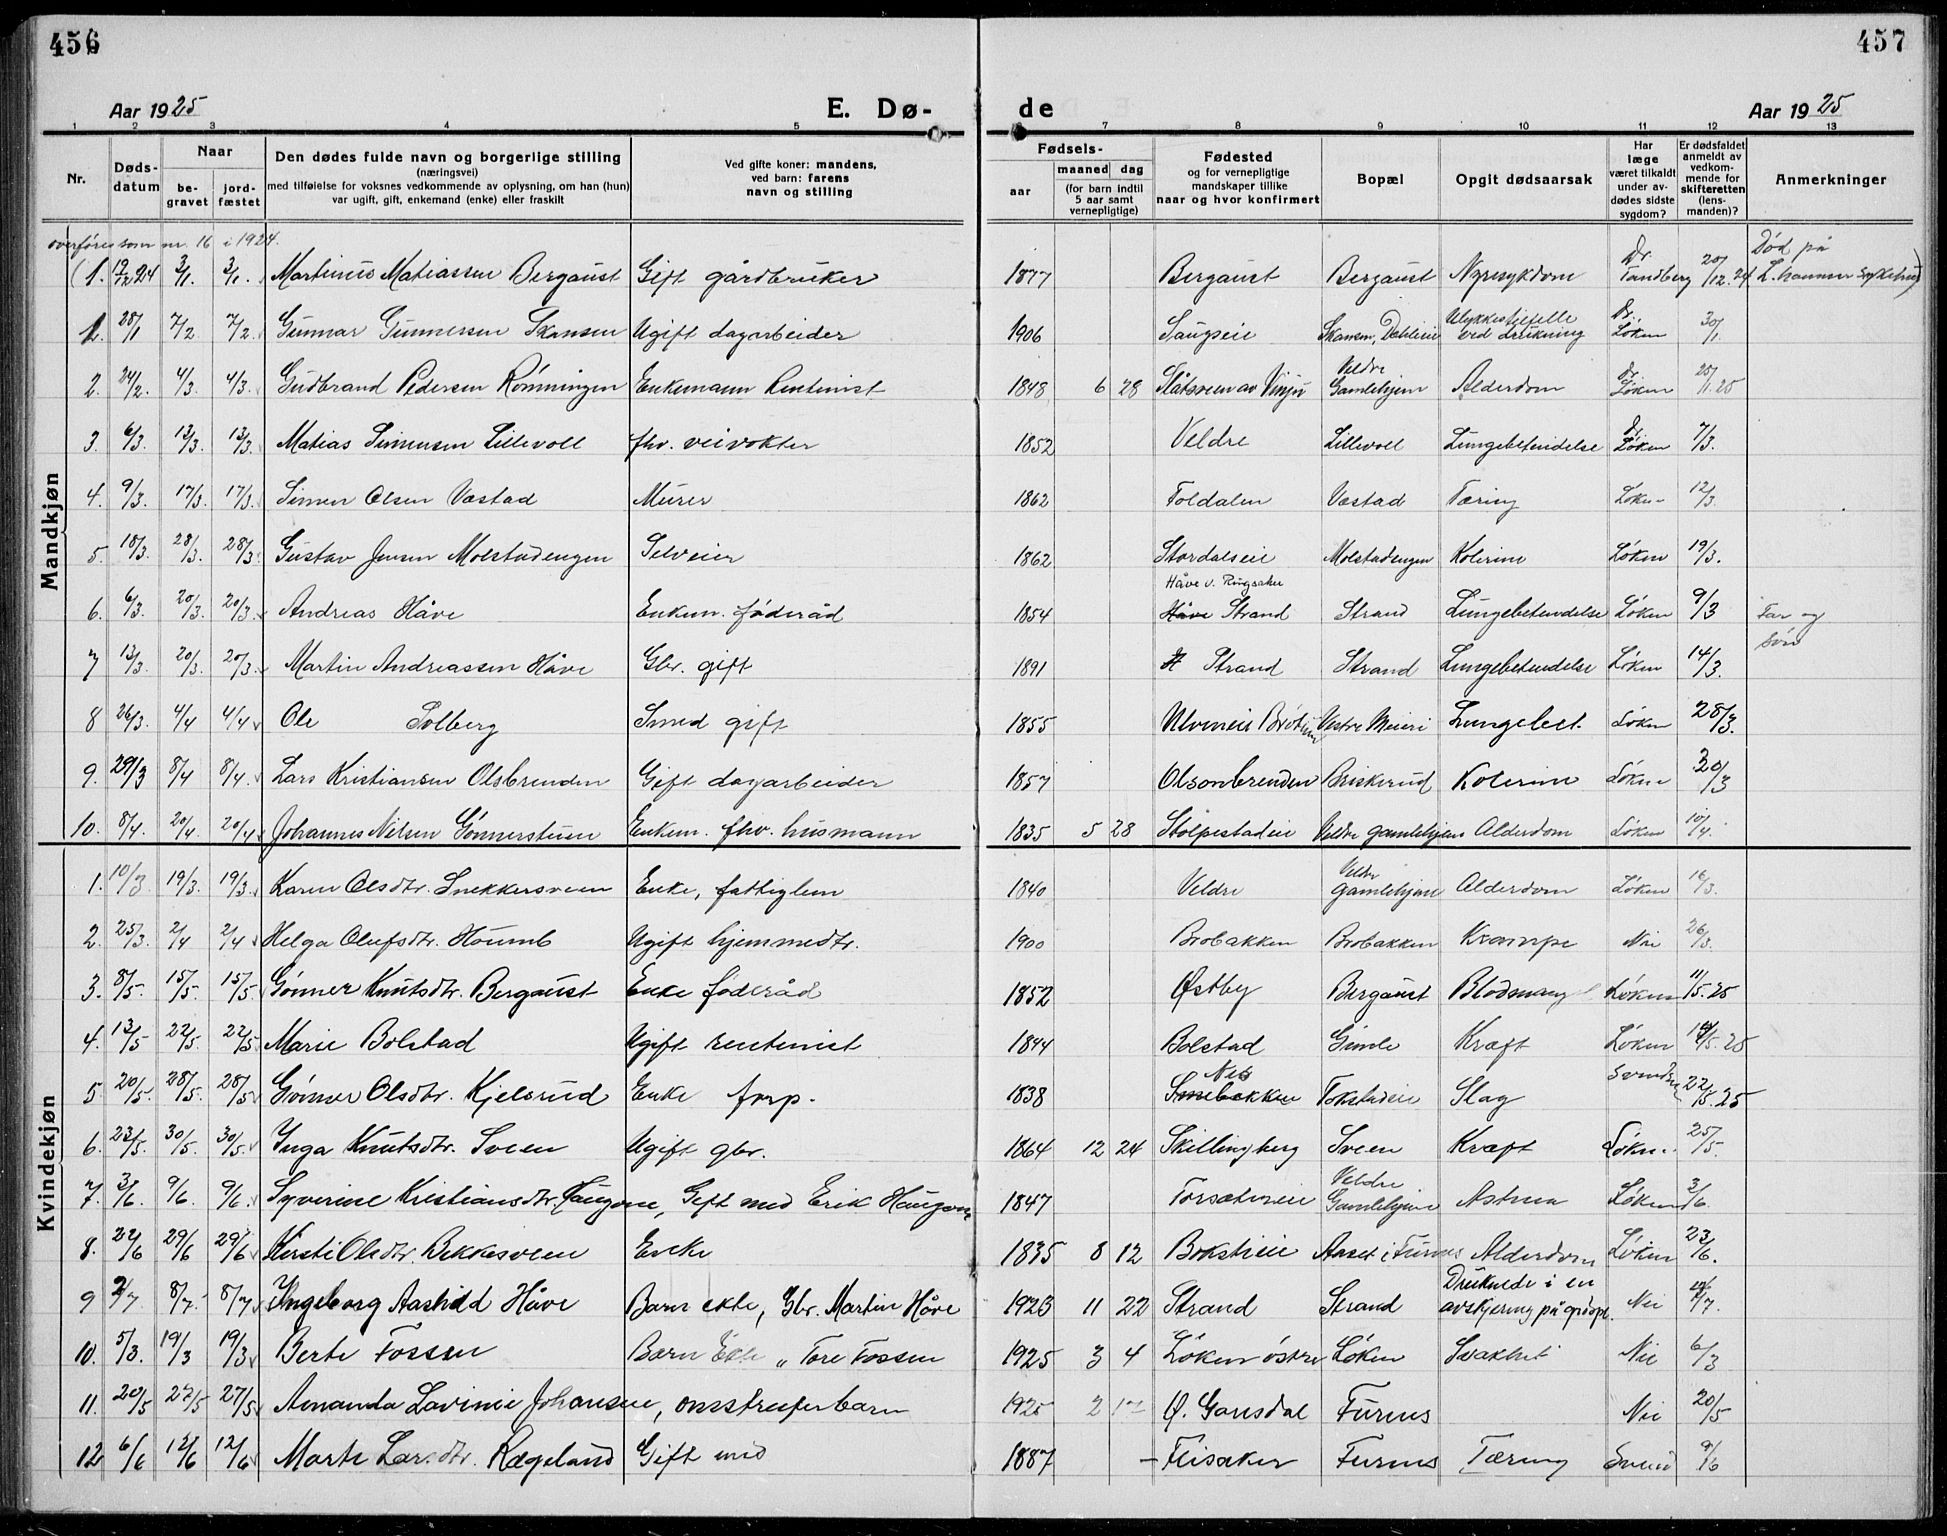 456
457
Aar 1925
E. Dø-
de
Aar 1925
1 2 3 4 5 6 7 8 9 10 11 12 13
Nr.
Døds-
datum
Naar
be-
gravet
jord-
fæstet
Den dødes fulde navn og borgerlige stilling
(næringsvei)
med tilføielse for voksnes vedkommende av oplysning, om han (hun)
var ugift, gift, enkemand (enke) eller fraskilt
Ved gifte koner: mandens,
ved barn: farens
navn og stilling
Fødsels-
aar
maaned dag
(for barn indtil
5 aar samt
vernepligtige)
Fødested
og for vernepligtige
mandskaper tillike
naar og hvor konfirmert
Bopæl
Opgit dødsaarsak
Har
læge
været tilkaldt
under av-
dødes sidste
sygdom?
Er dødsfaldet
anmeldt av
vedkom-
mende for
skifteretten
(lens-
manden)?
Anmerkninger
Mandkjøn
overføres som nr. 16 i 1924.
(1. 17/12 24 3/1. 3/1. Martinus Matiassen Bergaust Gift gårdbruker 1877 Bergaust Bergaust Nyresykdom Dr. Tandberg 20/12.24 Død på L.hammer sykehus)
1. 28/1 7/2. 7/2. Gunnar Gunnersen Skansen Ugift dagarbeider 1906 Saugseie Skansen, Dehlieie Ulykkestilfelle ved drukning Dr. Løken 30/1.
2. 24/2. 4/3. 4/3. Gudbrand Pedersen Rømningen Enkemann Rentenist 1848 6 28 Slåtsveen av Vinju Veldre Gamlehjem Alderdom Dr. Løken 25/11.25
3. 6/3. 13/3. 13/3. Matias Simensen Lillevoll fhv. veivokter 1852 Veldre Lillevoll Lungebetendelse Dr. Løken 7/3.
4. 9/3. 17/3. 17/3. Simen Olsen Væstad Murer 1862 Foldalen Væstad Tæring Løken 12/3.
5. 18/3. 28/3. 28/3. Gustav Jensen Molstadengen Selveier 1862 Stordalseie Molstadengen Kolerine Løken 19/3.
6. 6/3. 20/3. 20/3. Andreas Håve Enkem. føderåd 1854 Håve v. Ringsaker Håve Strand Strand Lungebetendelse Løken 9/3 Far og
7 13/3. 20/3. 20/3. Martin Andreassen Håve Gbr. gift 1891 H Strand Strand Lungebetendelse Løken 14/3. søn
8 26/3. 4/4 4/4 Ole Solberg Smed gift 1855 Ulveneie Vestre Meieri Lungebet. Løken 28/3.
9. 29/3 8/4 8/4. Lars Kristiansen Olsbrenden Gift dagarbeider 1857 Olsonbrenden Briskerud Kolerine Løken 30/3
10. 8/4. 20/4. 20/4 Johannes Nilsen Gønnerstuen Enkem. fhv. husmann 1835 5 28 Stolpestadeie Veldre gamlehjem Alderdom Løken 10/4.
Kvindekjøn
1. 10/3 19/3. 19/3. Karen Olsdtr. Snekkersveen Enke, fattiglem 1840 Veldre Veldre gamlehjem Alderdom Løken 16/3.
2. 25/3. 2/4 2/4 Helga Olufsdtr. Houmb Ugift hjemmedtr. 1900 Brobakken Brobakken Krampe Nei 26/3.
3. 8/5. 15/5. 15/5 Gønner Knutsdtr. Bergaust Enke føderåd 1852 Østby Bergaust Blodmangel Løken 11/5.25
4. 13/5 22/5. 22/5 Marie Bolstad Ugift rentenist 1844 Bolstad Gimle Kræft Løken 14/5.25
5. 20/5. 28/5. 28/5 Gønner Olsdtr. Kjelsrud Enke forp. 1838 Nes Smebakken Tokstadeie Slag Svendsen 22/5.25
6. 23/5. 30/5. 30/5. Inga Knutsdtr. Sveen Ugift gbr. 1864 12 24 Skillingberg Sveen Kræft Løken 25/5.
7. 3/6. 9/6. 9/6. Syverine Kristiansdtr. Haugom, Gift med Erik Haugom 1847 Torsætereie Veldre Gamlehjem Astma Løken 3/6.
8. 22/6 29/6 29/6 Kersti Olsdtr. Bekkesveen Enke 1835 8 12 Bokstieie Aaset i Furnes Alderdom Løken 23/6.
9 2/7 8/7. 8/7 Ingeborg Aashild Håve Barn ekte, Gbr. Martin Håve 1923 11 22 Strand Strand Druknede i en avskjering på grøpe. Nei /7.
10. 5/3. 19/3 19/3 Berte Fossen Barn Ekte " Tore Fossen 1925 3 4 Løken østre Løken Svakhet Nei 6/3
11. 20/5 27/5 27/5 Amanda Lavinie Johansen, omstreiferbarn 1925 2 17 Ø. Gaustdal Furnes Nei 20/5
12 6/6 12/6 12/6 Marte Larsdtr. Rægeland Gift med 1887 – Fleisaker Furnes Tæring Svend 9/6